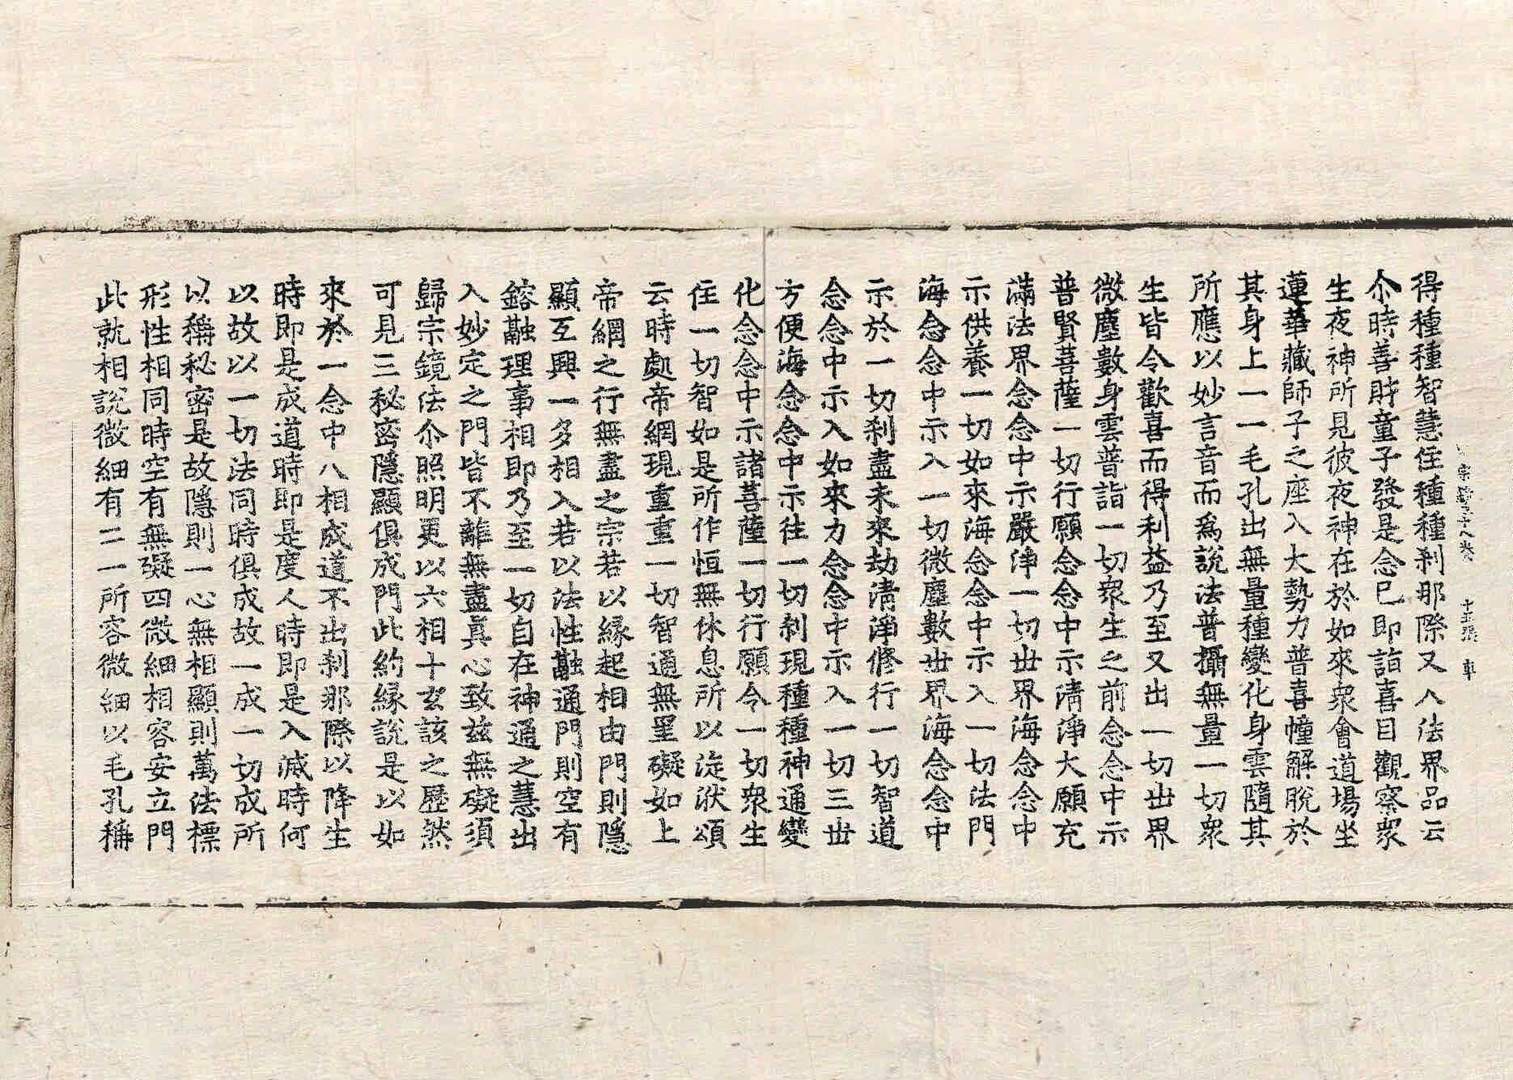 宗鏡三十八卷　十五張　車
得種種智慧住種種刹那際又入法界品云
尒時善財童子發是念已即詣喜目觀察衆
生夜神所見彼夜神在於如來衆會道場坐
蓮華藏師子之座入大勢力普喜幢解脫於
其身上一一毛孔出無量種變化身雲隨其
所應以妙言音而爲說法普攝無量一切衆
生皆令歡喜而得利益乃至又出一切世界
微塵數身雲普詣一切衆生之前念念中示
普賢菩薩一切行願念念中示清淨大願充
滿法界念念中示嚴淨一切世界海念念中
示供養一切如來海念念中示入一切法門
海念念中示入一切微塵數世界海念念中
示於一切刹盡未來劫清淨修行一切智道
念念中示入如來力念念中示入一切三世
方便海念念中示往一切刹現種種神通變
化念念中示諸菩薩一切行願令一切衆生
住一切智如是所作恒無休息所以淀洑頌
云時處帝網現重重一切智通無罣礙如上
帝網之行無盡之宗若以緣起相由門則隱
顯互興一多相入若以法性融通門則空有
鎔融理事相即乃至一切自在神通之慧出
入妙定之門皆不離無盡眞心致兹無礙須
歸宗鏡法尒照明更以六相十玄該之歷然
可見三秘密隱顯俱成門此約緣說是以如
來於一念中八相成道不出刹那際以降生
時即是成道時即是度人時即是入滅時何
以故以一切法同時俱成故一成一切成所
以稱秘密是故隱則一心無相顯則萬法標
形性相同時空有無礙四微細相容安立門
此就相說微細有二一所容微細以毛孔稱